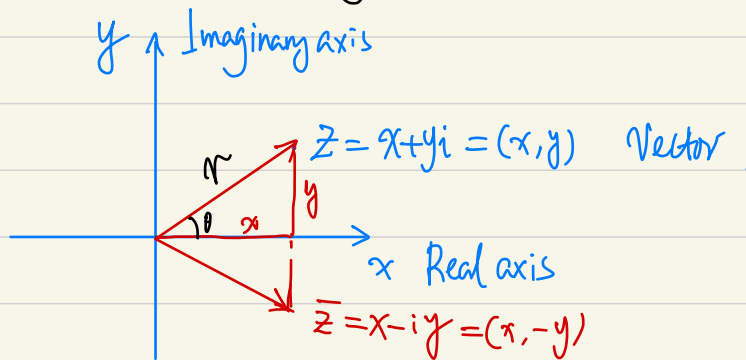 y Imaginary axis
z = x+yi = (x,y) Vector
r
y
θ x
x Real axis
z̅ = x-iy = (x,-y)